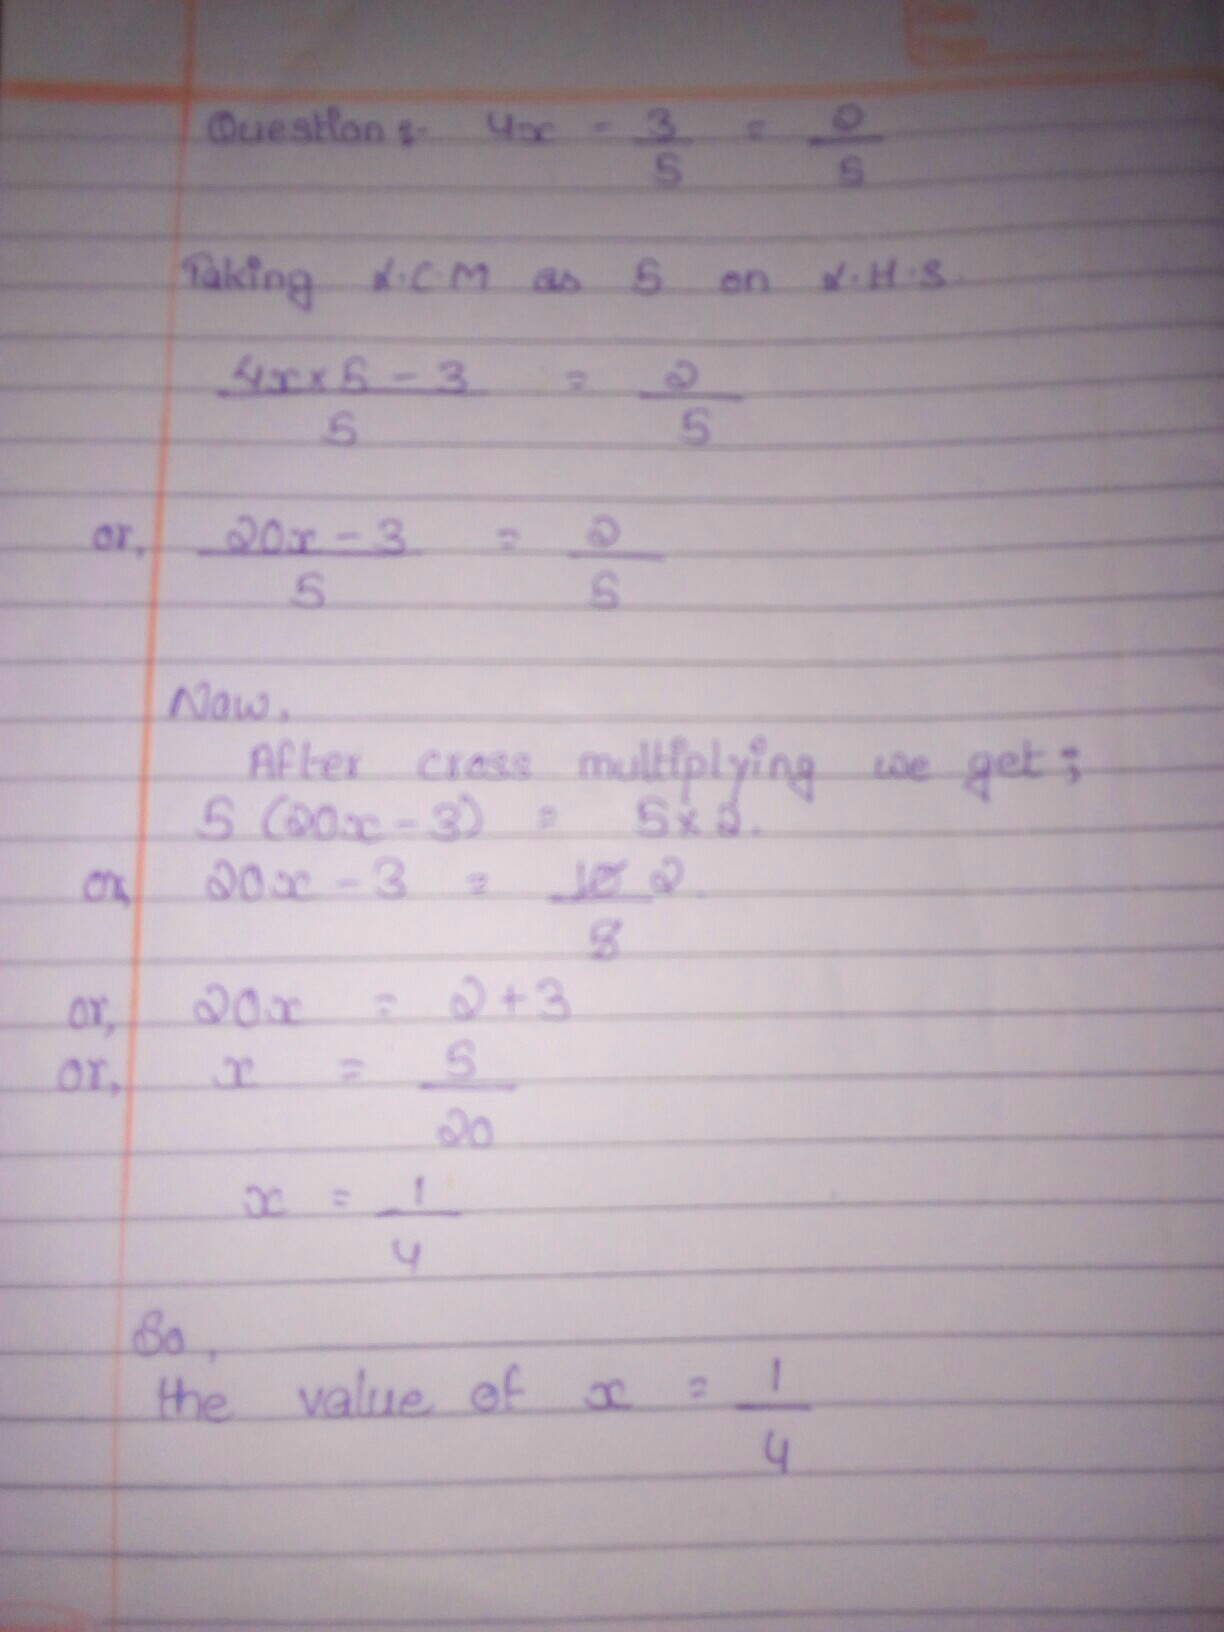 Question:- 4x - 3/5 = 2/5
Taking L.C.M as 5 on L.H.S.
4x×5 - 3/5 = 2/5
or, 20x - 3/5 = 2/5
Now,
After cross multiplying we get;
5 (20x - 3) = 5×2.
or, 20x - 3 = 10 2/5
or, 20x = 2+3
or, x = 5/20
x = 1/4
So,
the value of x = 1/4